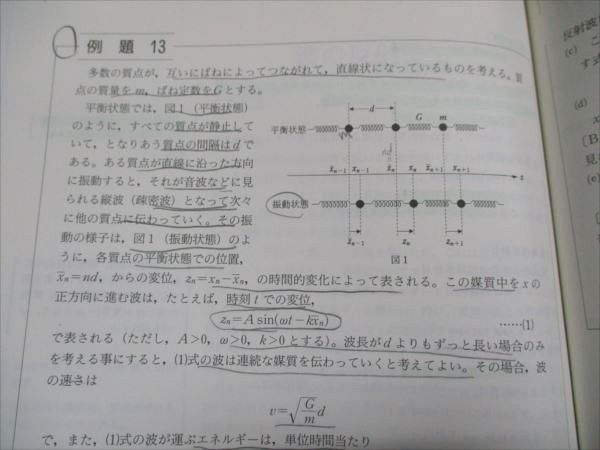 例 題 13
多数の質点が,互いにばねによってつながれて,直線状になっているものを考える。質
点の質量を m,ばね定数をGとする。
平衡状態では,図1(平衡状態)
のように,すべての質点が静止して
いて,となりあう質点の間隔はdで
ある。ある質点が直線に沿った方向
に振動すると,それが音波などに見
られる縦波(疎密波)となって次々
に他の質点に伝わっていく。その振
動の様子は,図1(振動状態)のよ
うに,各質点の平衡状態での位置,
x̄ₙ=nd,からの変位,zₙ=xₙ−x̄ₙ,の時間的変化によって表される。この媒質中をxの
正方向に進む波は,たとえば,時刻tでの変位,
zₙ=A sin(ωt−kx̄ₙ) ……(1)
で表される(ただし,A>0,ω>0,k>0とする)。波長がdよりもずっと長い場合のみ
を考える事にすると,(1)式の波は連続な媒質を伝わっていくと考えてよい。その場合,波
の速さは
v=√(G/m) d
で,また,(1)式の波が運ぶエネルギーは,単位時間当たり
d G m
平衡状態
x̄ₙ₋₁ xₙ₋₁ x̄ₙ xₙ x̄ₙ₊₁ xₙ₊₁
x
振動状態
zₙ₋₁ zₙ zₙ₊₁
図1
反射波
(c) こ
す式
(d)
x
[B
見
(e)